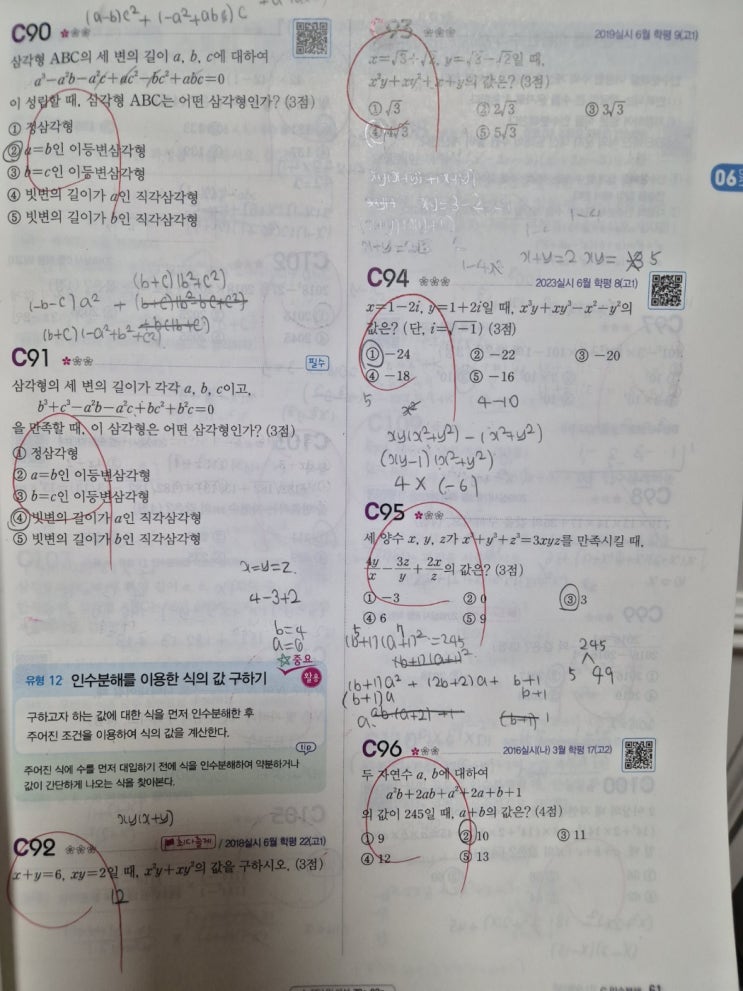 (a-b)c²+(-a²+ab
C90
삼각형 ABC의 세 변의 길이 a, b, c에 대하여
a³-a²b-a²c+ac²-bc²+abc=0
이 성립할 때, 삼각형 ABC는 어떤 삼각형인가? (3점)
① 정삼각형
② a=b인 이등변삼각형
③ b=c인 이등변삼각형
④ 빗변의 길이가 a인 직각삼각형
⑤ 빗변의 길이가 b인 직각삼각형
(b+c)(b²+c²)
(-b-c)a² +
(b+c)(-a²+b²+c²)
C91
필수
삼각형의 세 변의 길이가 각각 a, b, c이고,
b³+c³-a²b-a²c+bc²+b²c=0
을 만족할 때, 이 삼각형은 어떤 삼각형인가? (3점)
① 정삼각형
② a=b인 이등변삼각형
③ b=c인 이등변삼각형
④ 빗변의 길이가 a인 직각삼각형
⑤ 빗변의 길이가 b인 직각삼각형
x=y=z.
4-3+2
b=4
a=6
중요
유형 12 인수분해를 이용한 식의 값 구하기
활용
구하고자 하는 값에 대한 식을 먼저 인수분해한 후
주어진 조건을 이용하여 식의 값을 계산한다.
tip
주어진 식에 수를 먼저 대입하기 전에 식을 인수분해하여 약분하거나
값이 간단하게 나오는 식을 찾아본다.
xy(x+y)
C92
최다출제 / 2018실시 6월 학평 22(고1)
x+y=6, xy=2일 때, x²y+xy²의 값을 구하시오. (3점)
12
C93
2019실시 6월 학평 9(고1)
x=√3+√2, y=√3-√2일 때,
x²y+xy²+x+y의 값은? (3점)
① √3 ② 2√3 ③ 3√3
④ 4√3 ⑤ 5√3
06
x+y=2 xy= 5
C94
2023실시 6월 학평 8(고1)
x=1-2i, y=1+2i일 때, x³y+xy³-x²-y²의
값은? (단, i=√-1) (3점)
① -24 ② -22 ③ -20
④ -18 ⑤ -16
5 x² 4-10
xy(x²+y²)-(x²+y²)
(xy-1)(x²+y²)
4×(-6)
C95
세 양수 x, y, z가 x³+y³+z³=3xyz를 만족시킬 때,
4y/x - 3z/y + 2x/z의 값은? (3점)
① -3 ② 0 ③ 3
④ 6 ⑤ 9
5 7
(b+1)(a+1)²=245
(b+1)(a+1)²
245
5 49
(b+1)a²+(2b+2)a+ b+1
(b+1)a b+1
C96
2016실시(나) 3월 학평 17(고2)
두 자연수 a, b에 대하여
a²b+2ab+a²+2a+b+1
의 값이 245일 때, a+b의 값은? (4점)
① 9 ② 10 ③ 11
④ 12 ⑤ 13
61